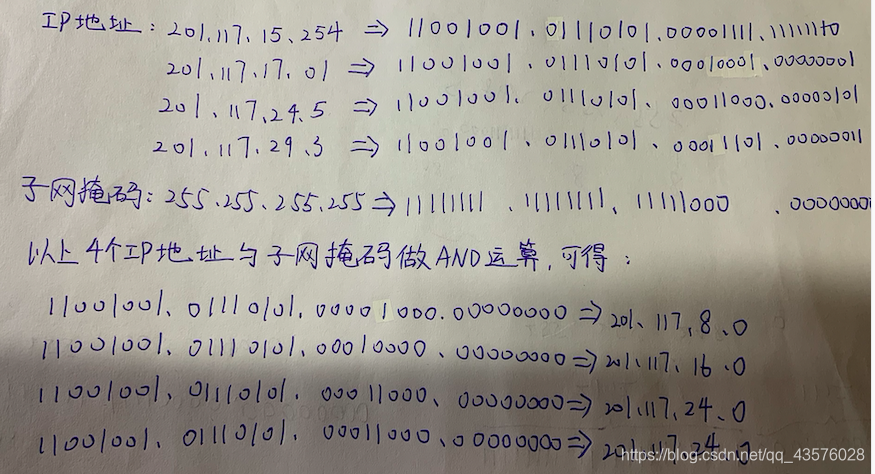 IP地址：201.117.15.254 ⇒ 11001001.01110101.00001111.11111110
201.117.17.01 ⇒ 11001001.01110101.00010001.00000001
201.117.24.5 ⇒ 11001001.01110101.00011000.00000101
201.117.29.3 ⇒ 11001001.01110101.00011101.00000011
子网掩码：255.255.255.255 ⇒ 11111111.11111111.11111000.00000000
以上4个IP地址与子网掩码做AND运算,可得：
11001001.01110101.00001000.00000000 ⇒ 201.117.8.0
11001001.01110101.00010000.00000000 ⇒ 201.117.16.0
11001001.01110101.00011000.00000000 ⇒ 201.117.24.0
11001001.01110101.00011000.00000000 ⇒ 201.117.24.0
https://blog.csdn.net/qq_43576028